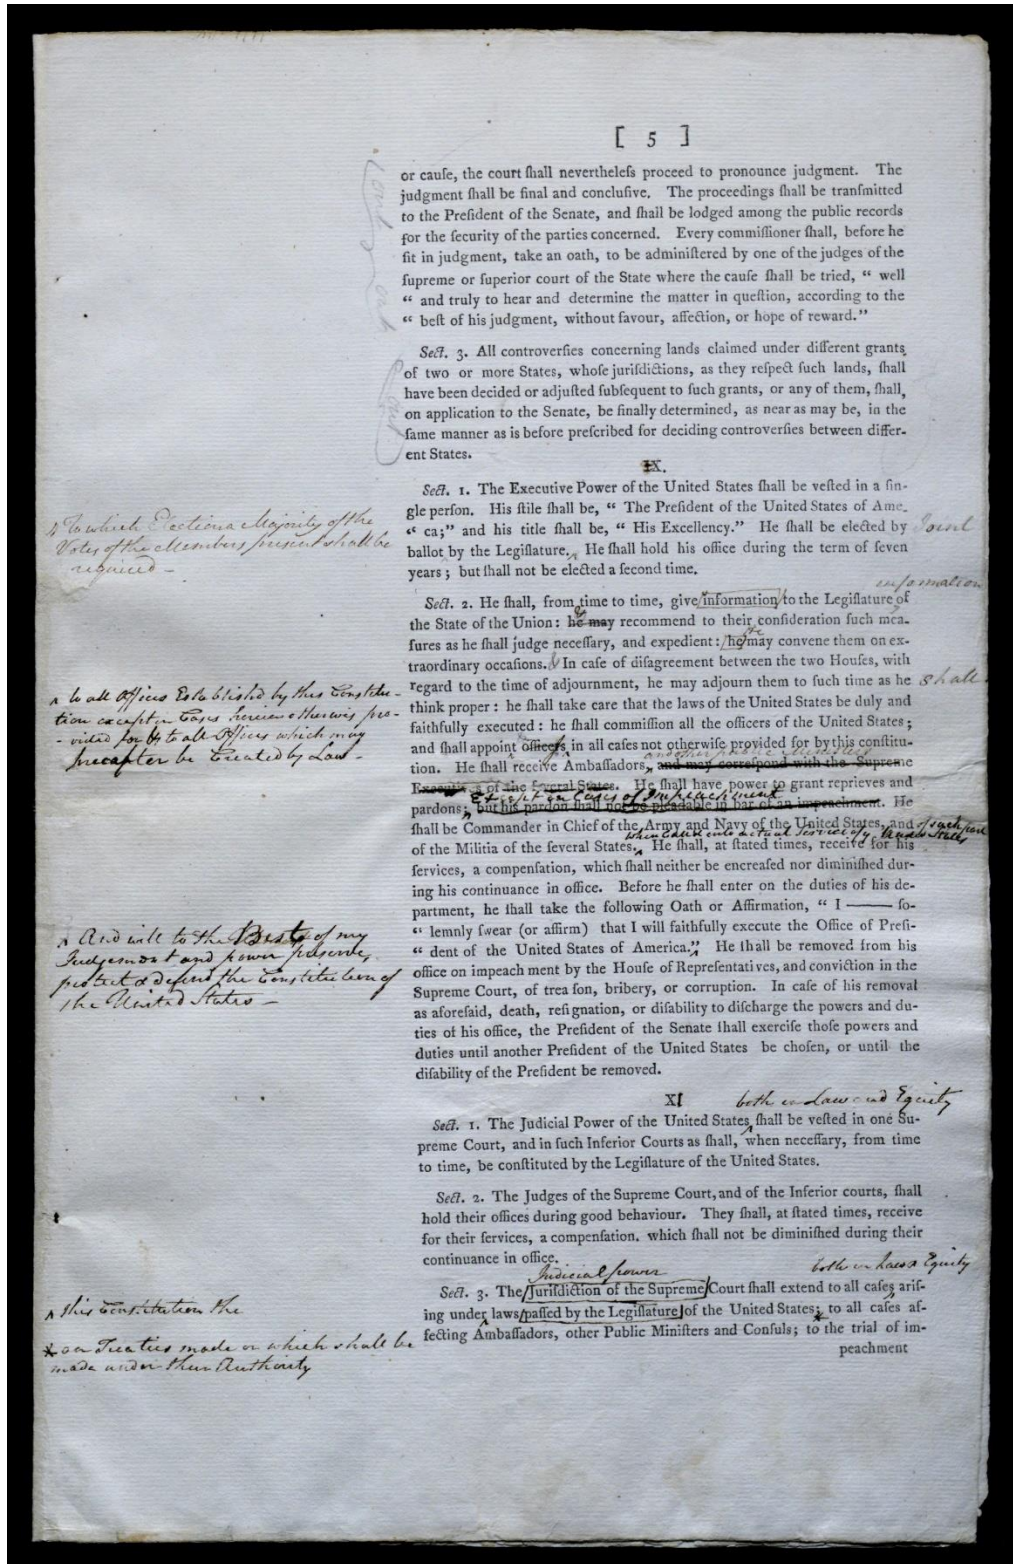 [ 5 ]
or cauſe, the court ſhall nevertheleſs proceed to pronounce judgment. The
judgment ſhall be final and concluſive. The proceedings ſhall be tranſmitted
to the Preſident of the Senate, and ſhall be lodged among the public records
for the ſecurity of the parties concerned. Every commiſſioner ſhall, before he
ſit in judgment, take an oath, to be adminiſtered by one of the judges of the
ſupreme or ſuperior court of the State where the cauſe ſhall be tried, “ well
“ and truly to hear and determine the matter in queſtion, according to the
“ beſt of his judgment, without favour, affection, or hope of reward.”
Sect. 3. All controverſies concerning lands claimed under different grants
of two or more States, whoſe juriſdictions, as they reſpect ſuch lands, ſhall
have been decided or adjuſted ſubſequent to ſuch grants, or any of them, ſhall,
on application to the Senate, be finally determined, as near as may be, in the
ſame manner as is before preſcribed for deciding controverſies between differ-
ent States.
IX.
Sect. 1. The Executive Power of the United States ſhall be veſted in a ſin-
gle perſon. His ſtile ſhall be, “ The Preſident of the United States of Ame-
“ ca;” and his title ſhall be, “ His Excellency.” He ſhall be elected by
Joint
ballot by the Legiſlature. He ſhall hold his office during the term of ſeven
years ; but ſhall not be elected a ſecond time.
to which Election a Majority of the
Votes of the Members present shall be
required -
information
Sect. 2. He ſhall, from time to time, give information to the Legiſlature of
the State of the Union : he may recommend to their conſideration ſuch mea-
ſures as he ſhall judge neceſſary, and expedient : he may convene them on ex-
traordinary occaſions. In caſe of diſagreement between the two Houſes, with
regard to the time of adjournment, he may adjourn them to ſuch time as he
shall
think proper : he ſhall take care that the laws of the United States be duly and
faithfully executed : he ſhall commiſſion all the officers of the United States ;
and ſhall appoint officers in all caſes not otherwiſe provided for by this conſtitu-
to all Offices Established by this Constitu-
tion except in Cases herein otherwise pro-
-vided for & to all Offices which may
hereafter be Created by Law -
and other public Ministers
tion. He ſhall receive Ambaſſadors, and may correſpond with the Supreme
Executives of the ſeveral States. He ſhall have power to grant reprieves and
Except in Cases of Impeachment
pardons ; but his pardon ſhall not be pleadable in bar of an impeachment. He
ſhall be Commander in Chief of the Army and Navy of the United States, and
when called into actual Service of the United States
of the Militia of the ſeveral States. He ſhall, at ſtated times, receive for his
ſervices, a compenſation, which ſhall neither be encreaſed nor diminiſhed dur-
ing his continuance in office. Before he ſhall enter on the duties of his de-
partment, he ſhall take the following Oath or Affirmation, “ I —— ſo-
“ lemnly ſwear (or affirm) that I will faithfully execute the Office of Preſi-
“ dent of the United States of America.” He ſhall be removed from his
And will to the Best of my
Judgement and power preserve,
protect & defend the Constitution of
the United States -
office on impeach ment by the Houſe of Repreſentatives, and conviction in the
Supreme Court, of trea ſon, bribery, or corruption. In caſe of his removal
as aforeſaid, death, reſignation, or diſability to diſcharge the powers and du-
ties of his office, the Preſident of the Senate ſhall exerciſe thoſe powers and
duties until another Preſident of the United States be choſen, or until the
diſability of the Preſident be removed.
XI
both in Law and Equity
Sect. 1. The Judicial Power of the United States ſhall be veſted in one Su-
preme Court, and in ſuch Inferior Courts as ſhall, when neceſſary, from time
to time, be conſtituted by the Legiſlature of the United States.
Sect. 2. The Judges of the Supreme Court, and of the Inferior courts, ſhall
hold their offices during good behaviour. They ſhall, at ſtated times, receive
for their ſervices, a compenſation. which ſhall not be diminiſhed during their
continuance in office.
Judicial power
both in Law & Equity
Sect. 3. The Juriſdiction of the Supreme Court ſhall extend to all caſes ariſ-
ing under laws paſſed by the Legiſlature of the United States ; to all caſes af-
fecting Ambaſſadors, other Public Miniſters and Conſuls ; to the trial of im-
this Constitution the
or Treaties made or which shall be
made under their Authority
peachment